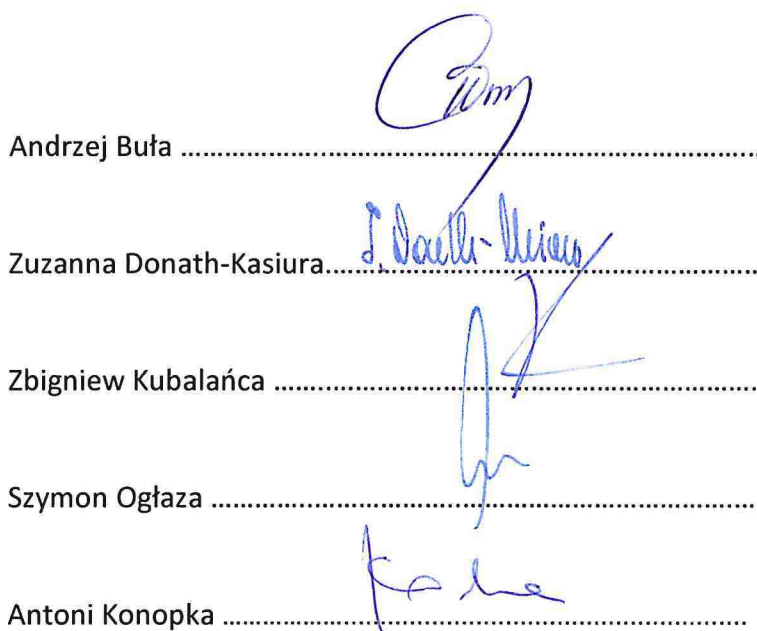 Andrzej Buła ..........................................................................................
Zuzanna Donath-Kasiura..................................................................
Zbigniew Kubalańca ...........................................................................
Szymon Ogłaza ....................................................................................
Antoni Konopka ..................................................................................